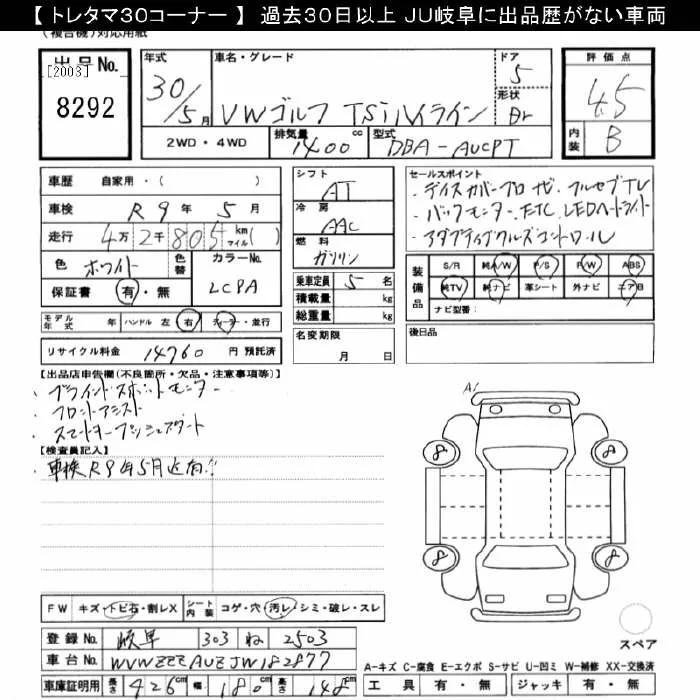 【 トレタマ30コーナー 】 過去30日以上 JU岐阜に出品歴がない車両
(複合機)対応用紙
出品No.
[2003]
8292
年式
30/5月
車名・グレード
VWゴルフ TSiハイライン
ドア
5
形状
Br
評価点
4.5
内装
B
2WD・4WD
排気量
1400 cc
型式
DBA-AUCPT
車歴 自家用・( )
車検 R 9年 5月
走行 4万 2千 805 km マイル ( )
色 ホワイト
色替
カラーNo.
LCPA
保証書 有・無
モデル年式 年 ハンドル 左 右 ディーラー・並行
リサイクル料金 14760 円 預託済
シフト
AT
冷房
AAC
燃料
ガソリン
乗車定員 5 名
積載量 kg
総重量 kg
名変期限
月 日
セールスポイント
・ディスカバープロ ナビ、フルセグTV
・バックモニター、ETC、LEDヘッドライト
・アダプティブクルーズコントロール
装備品
S/R 純A/W P/S P/W ABS
純TV 純ナビ 革シート 外ナビ エアB
ナビ型番:
後日品
【出品店申告欄(不良箇所・欠品・注意事項等)】
・ブラインドスポットモニター
・フロントアシスト
・スマートキープッシュスタート
【検査員記入】
車検R9年5月迄有!!
A1
8
8
8
8
スペア
FW キズ・トビ石・割レX
シート内装 コゲ・穴・汚レ・シミ・破レ・スレ
登録No. 岐阜 303 ね 2503
車台No. WVWZZZAUZJW182877
車庫証明用 長さ 426cm 幅 180cm 高さ 148cm
A-キズ C-腐食 E-エクボ S-サビ U-凹ミ W-補修 XX-交換済
工具 有・無 ジャッキ 有・無